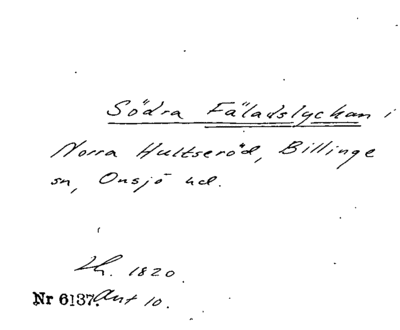 Södra Fäladslyckan i
Norra Hultseröd, Billinge
sn, Onsjö hd.
Lh. 1820.
Nr 6137. Ant 10.